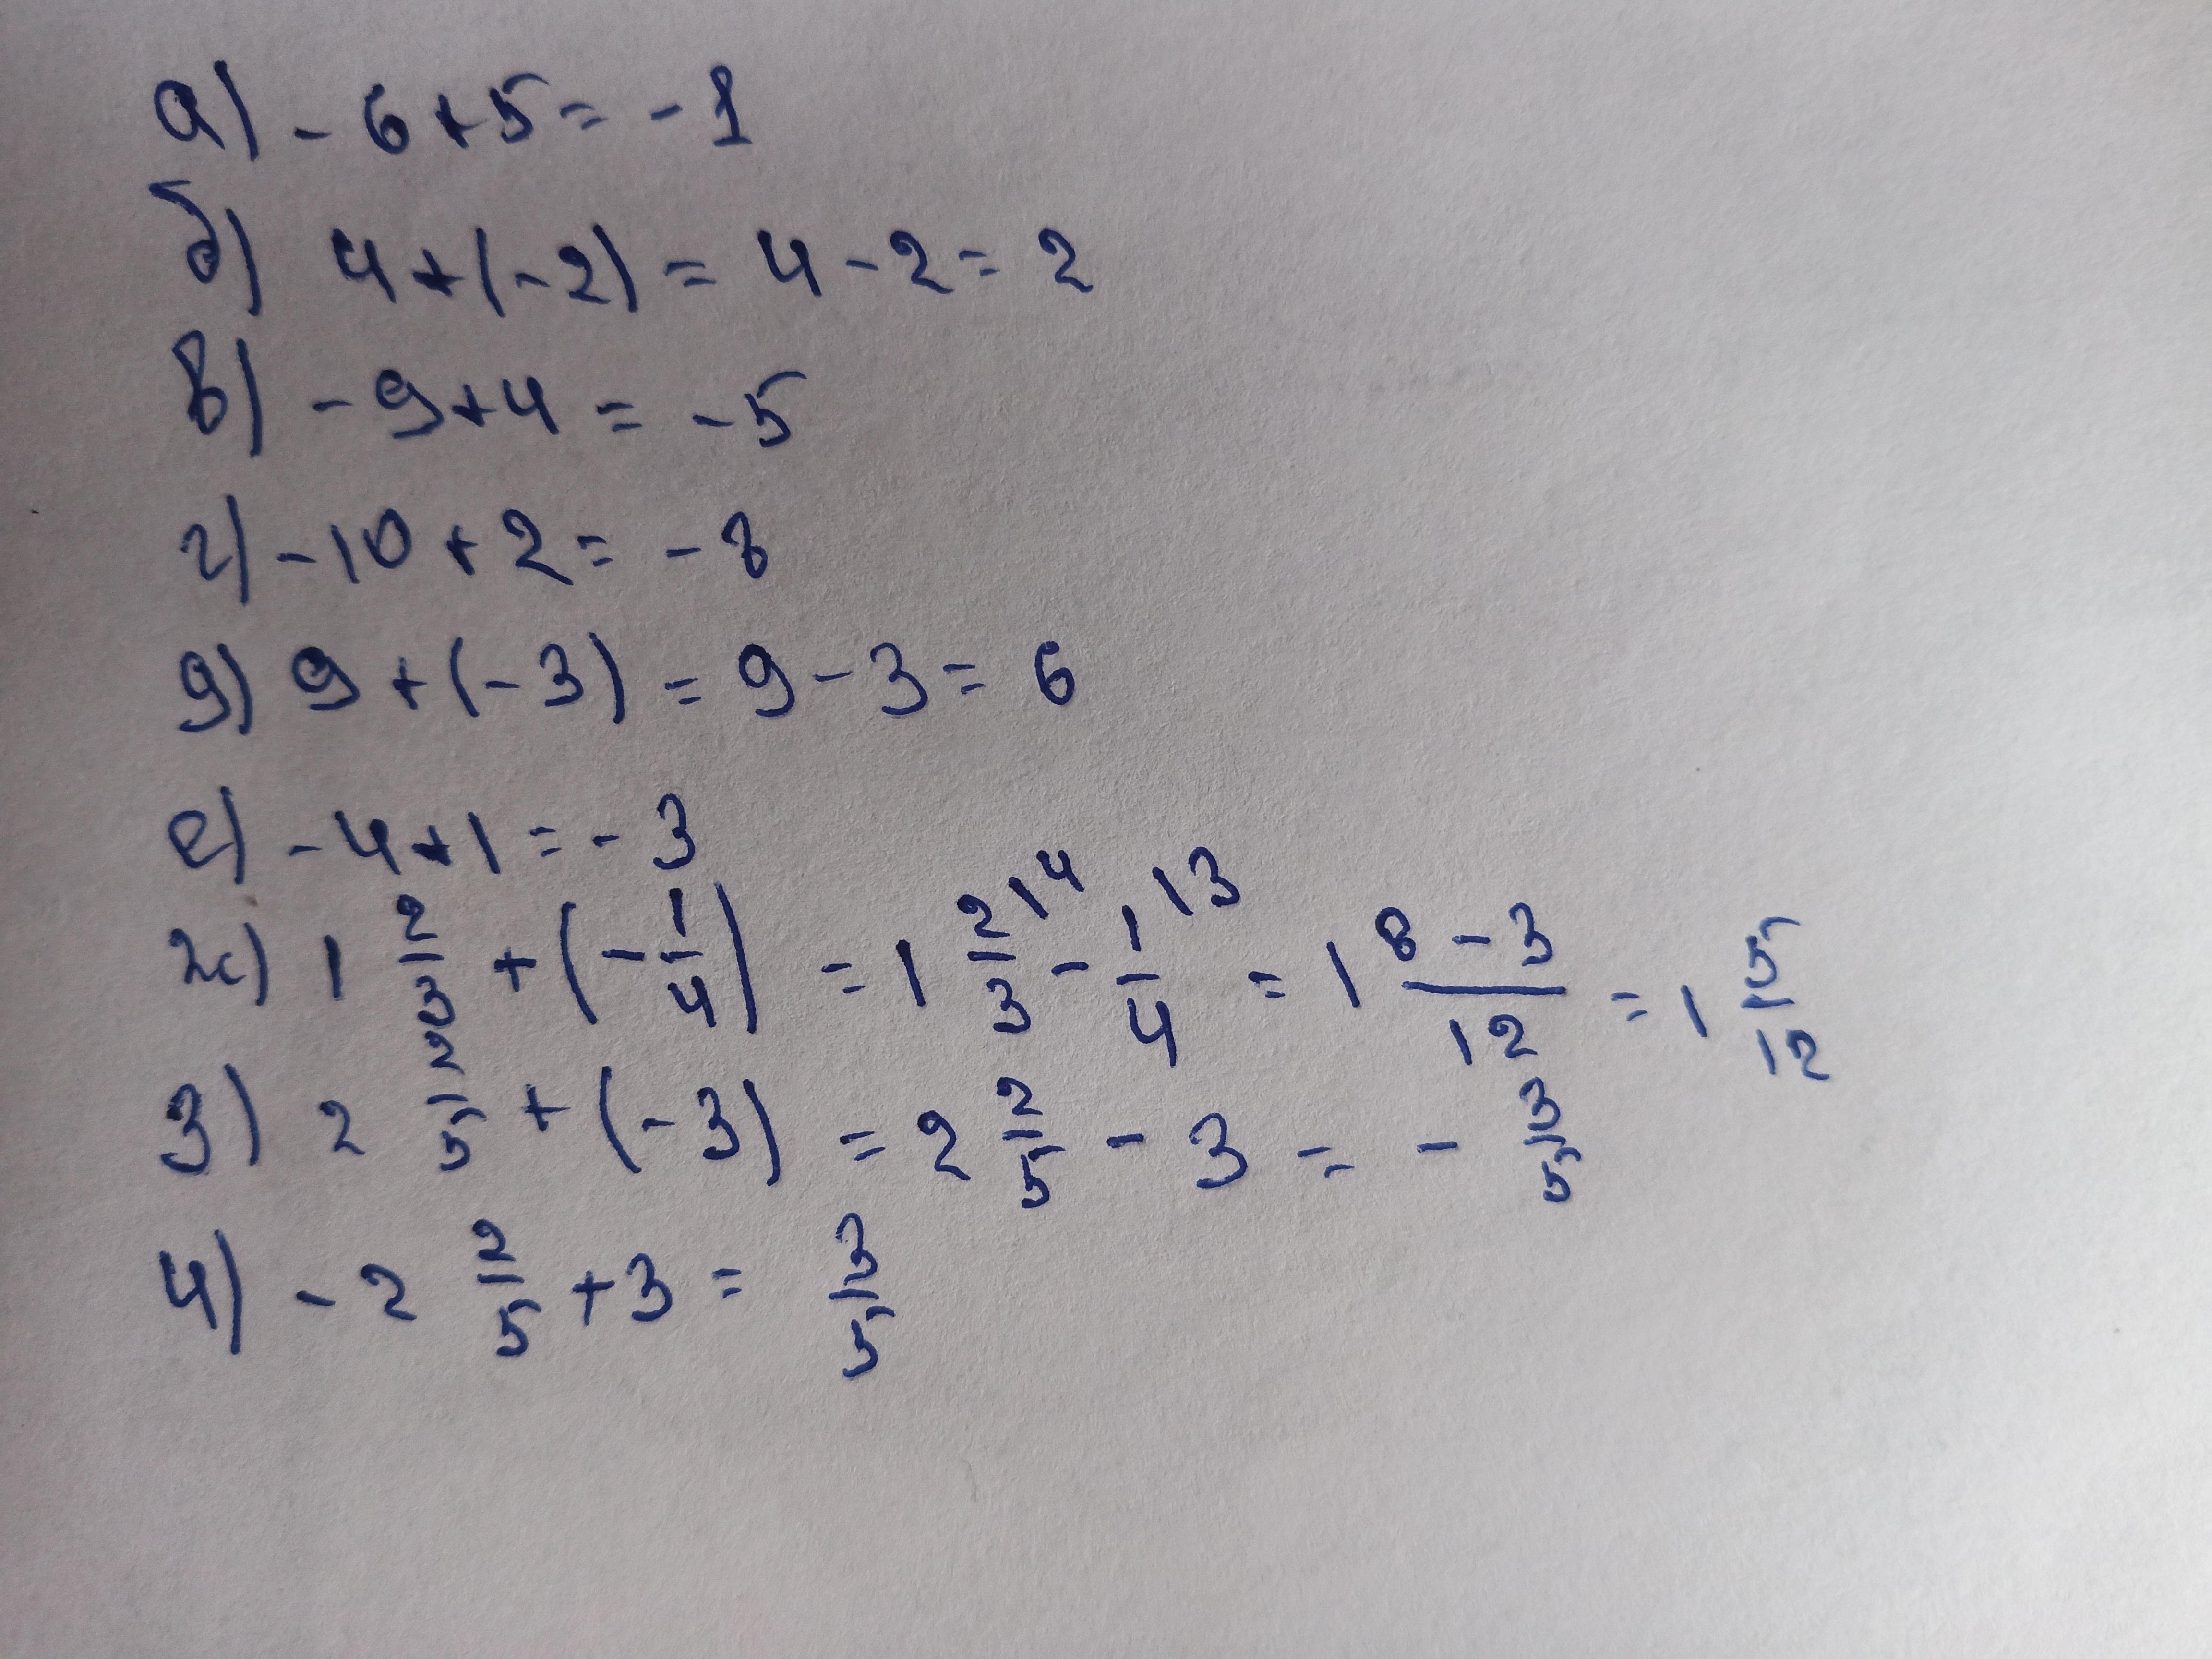 а) - 6 + 5 = - 1
б) 4 + (- 2) = 4 - 2 = 2
в) - 9 + 4 = - 5
г) - 10 + 2 = - 8
д) 9 + (- 3) = 9 - 3 = 6
е) - 4 + 1 = - 3
ж) 1 2/3 + (- 1/4) = 1 2/3 |4 - 1/4 |3 = 1 (8 - 3)/12 = 1 5/12
з) 2 2/5 + (- 3) = 2 2/5 - 3 = - 3/5
и) - 2 2/5 + 3 = 3/5